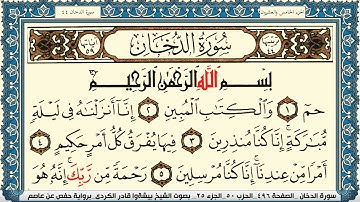 الجزء الخامس والعشرون
سورة الدخان ٤٤
سُورَةُ الدُّخَانِ
بِسْمِ اللَّهِ الرَّحْمَٰنِ الرَّحِيمِ
حمٓ ١ وَالْكِتَابِ الْمُبِينِ ٢ إِنَّا أَنزَلْنَاهُ فِي لَيْلَةٍ
مُّبَارَكَةٍ إِنَّا كُنَّا مُنذِرِينَ ٣ فِيهَا يُفْرَقُ كُلُّ أَمْرٍ حَكِيمٍ ٤
أَمْرًا مِّنْ عِندِنَا إِنَّا كُنَّا مُرْسِلِينَ ٥ رَحْمَةً مِّن رَّبِّكَ إِنَّهُ هُوَ
سورة الدخان _ الصفحة ٤٩٦ _ الحزب ٥٠ _ الجزء ٢٥ _ بصوت الشيخ بيشةوا قادر الكردي _ برواية حفص عن عاصم